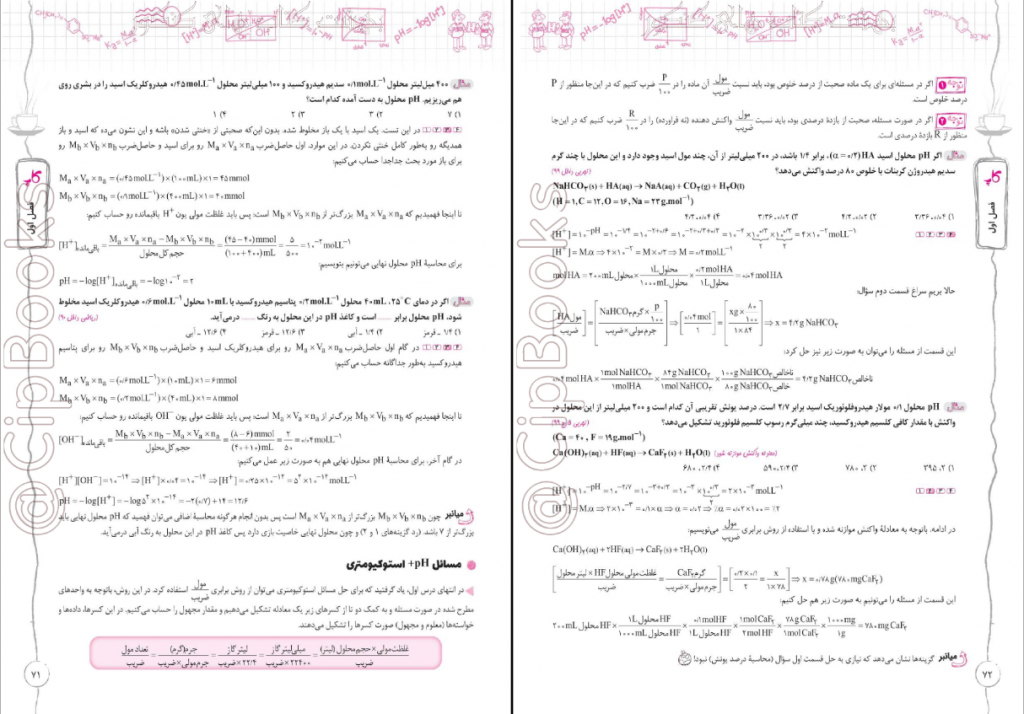 مثال ۴۰۰ میلی‌لیتر محلول ۰/۱mol.L⁻¹ سدیم هیدروکسید و ۱۰۰ میلی‌لیتر محلول ۰/۴۵mol.L⁻¹ هیدروکلریک اسید را در بشری روی
هم می‌ریزیم. pH محلول به دست آمده کدام است؟
۱) ۷ ۲) ۳ ۳) ۲ ۴) ۱
در این تست، یک اسید با یک باز مخلوط شده، بدون این‌که صحبتی از «خنثی شدن» باشه و این نشون می‌ده که اسید و باز
همدیگه رو به‌طور کامل خنثی نکردن. در این موارد، اول حاصل‌ضرب Mₐ×Vₐ×nₐ رو برای اسید و حاصل‌ضرب M_b×V_b×n_b رو
برای باز مورد بحث جداجدا حساب می‌کنیم:
Mₐ×Vₐ×nₐ = (۰/۴۵molL⁻¹)×(۱۰۰mL)×۱ = ۴۵mmol
M_b×V_b×n_b = (۰/۱molL⁻¹)×(۴۰۰mL)×۱ = ۴۰mmol
تا اینجا فهمیدیم که Mₐ×Vₐ×nₐ بزرگ‌تر از M_b×V_b×n_b است؛ پس باید غلظت مولی یون H⁺ باقیمانده رو حساب کنیم:
[H⁺]باقی‌مانده = (Mₐ×Vₐ×nₐ − M_b×V_b×n_b)/حجم کل محلول = (۴۵−۴۰)mmol/(۱۰۰+۴۰۰)mL = ۵/۵۰۰ = ۱۰⁻² molL⁻¹
برای محاسبهٔ pH محلول نهایی می‌تونیم بنویسیم:
pH = −log[H⁺]باقی‌مانده = −log۱۰⁻² = ۲
مثال اگر در دمای ۲۵°C، ۴۰mL محلول ۰/۲mol.L⁻¹ پتاسیم هیدروکسید با ۱۰mL محلول ۰/۶mol.L⁻¹ هیدروکلریک اسید مخلوط
شود، pH محلول برابر ........ است و کاغذ pH در این محلول به رنگ ........ درمی‌آید. (ریاضی خارج ۹۰)
۱) ۱/۴ ـ قرمز ۲) ۱/۴ ـ آبی ۳) ۱۲/۶ ـ قرمز ۴) ۱۲/۶ ـ آبی
در گام اول حاصل‌ضرب Mₐ×Vₐ×nₐ رو برای هیدروکلریک اسید و حاصل‌ضرب M_b×V_b×n_b رو برای پتاسیم
هیدروکسید به‌طور جداگانه حساب می‌کنیم:
Mₐ×Vₐ×nₐ = (۰/۶molL⁻¹)×(۱۰mL)×۱ = ۶mmol
M_b×V_b×n_b = (۰/۲molL⁻¹)×(۴۰mL)×۱ = ۸mmol
تا اینجا فهمیدیم که M_b×V_b×n_b بزرگ‌تر از Mₐ×Vₐ×nₐ است؛ پس باید غلظت مولی یون OH⁻ باقیمانده رو حساب کنیم:
[OH⁻]باقی‌مانده = (M_b×V_b×n_b − Mₐ×Vₐ×nₐ)/حجم کل محلول = (۸−۶)mmol/(۴۰+۱۰)mL = ۲/۵۰ = ۰/۰۴molL⁻¹
در گام آخر، برای محاسبهٔ pH محلول نهایی هم به صورت زیر عمل می‌کنیم:
[H⁺][OH⁻] = ۱۰⁻¹⁴ ⇒ [H⁺]×۰/۰۴ = ۱۰⁻¹⁴ ⇒ [H⁺] = ۰/۲۵×۱۰⁻¹² = ۵²×۱۰⁻¹⁴ molL⁻¹
pH = −log[H⁺] = −log۵²×۱۰⁻¹⁴ = −۲(۰/۷)+۱۴ = ۱۲/۶
میانبر چون M_b×V_b×n_b بزرگ‌تر از Mₐ×Vₐ×nₐ است پس بدون انجام هرگونه محاسبهٔ اضافی می‌توان فهمید که pH محلول نهایی باید
بزرگ‌تر از ۷ باشد. (رد گزینه‌های ۱ و ۲) و چون محلول نهایی خاصیت بازی دارد پس کاغذ pH در این محلول به رنگ آبی درمی‌آید.
مسائل pH+ استوکیومتری
در انتهای درس اول، یاد گرفتید که برای حل مسائل استوکیومتری می‌توان از روش برابری مول/ضریب استفاده کرد. در این روش، باتوجه به واحدهای
مطرح شده در صورت مسئله و به کمک دو تا از کسرهای زیر یک معادله تشکیل می‌دهیم و مقدار مجهول را حساب می‌کنیم. در این کسرها، داده‌ها و
خواسته‌ها (معلوم و مجهول) صورت کسرها را تشکیل می‌دهند.
تعداد مول/ضریب = جرم(گرم)/جرم مولی×ضریب = لیتر گاز/۲۲/۴×ضریب = میلی‌لیتر گاز/۲۲۴۰۰×ضریب = غلظت مولی×حجم محلول (لیتر)/ضریب
۷۱
فصل اول
توجه ۱ اگر در مسئله‌ای برای یک ماده صحبت از درصد خلوص بود، باید نسبت مول/ضریب آن ماده را در P/۱۰۰ ضرب کنیم که در این‌جا منظور از P
درصد خلوص است.
توجه ۲ اگر در صورت مسئله، صحبت از بازدهٔ درصدی بود، باید نسبت مول/ضریب واکنش دهنده (نه فراورده) را در R/۱۰۰ ضرب کنیم که در این‌جا
منظور از R بازدهٔ درصدی است.
مثال اگر pH محلول اسید HA (α = ۰/۲)، برابر ۱/۴ باشد، در ۲۰۰ میلی‌لیتر از آن، چند مول اسید وجود دارد و این محلول با چند گرم
سدیم هیدروژن کربنات با خلوص ۸۰ درصد واکنش می‌دهد؟ (تجربی خارج ۹۹)
NaHCO₃(s) + HA(aq) → NaA(aq) + CO₂(g) + H₂O(l)
(H = ۱, C = ۱۲, O = ۱۶, Na = ۲۳ g.mol⁻¹)
۱) ۳/۳۶ ،۰/۰۲ ۲) ۴/۲ ،۰/۰۲ ۳) ۳/۳۶ ،۰/۰۴ ۴) ۴/۲ ،۰/۰۴
[H⁺] = ۱۰⁻ᵖᴴ = ۱۰⁻¹/⁴ = ۱۰⁻²⁺⁰/⁶ = ۱۰⁻²⁺⁰/³⁺⁰/³ = ۱۰⁻²×۱۰⁰/³×۱۰⁰/³ = ۴×۱۰⁻² molL⁻¹
[H⁺] = M.α ⇒ ۴×۱۰⁻² = M×۰/۲ ⇒ M = ۰/۲molL⁻¹
molHA = ۲۰۰mL محلول × ۱L محلول/۱۰۰۰mL محلول × ۰/۲molHA/۱L محلول = ۰/۰۴molHA
حالا بریم سراغ قسمت دوم سؤال:
[مول HA/ضریب] = [گرم NaHCO₃ × P/۱۰۰ / جرم مولی×ضریب] ⇒ [۰/۰۴mol/۱] = [xg×۸۰/۱۰۰ / ۱×۸۴] ⇒ x = ۴/۲g NaHCO₃
این قسمت از مسئله را می‌توان به صورت زیر نیز حل کرد:
۰/۰۴molHA × ۱molNaHCO₃/۱molHA × ۸۴gNaHCO₃/۱molNaHCO₃ × ۱۰۰gNaHCO₃ ناخالص/۸۰gNaHCO₃ خالص = ۴/۲gNaHCO₃ ناخالص
مثال pH محلول ۰/۱ مولار هیدروفلوئوریک اسید برابر ۲/۷ است. درصد یونش تقریبی آن کدام است و ۲۰۰ میلی‌لیتر از این محلول در
واکنش با مقدار کافی کلسیم هیدروکسید، چند میلی‌گرم رسوب کلسیم فلوئورید تشکیل می‌دهد؟
(Ca = ۴۰, F = ۱۹g.mol⁻¹)
Ca(OH)₂(aq) + HF(aq) → CaF₂(s) + H₂O(l) (معادله واکنش موازنه شود)
۱) ۲، ۳۹۵ ۲) ۲، ۷۸۰ ۳) ۲/۴، ۵۹۰ ۴) ۲/۴، ۶۸۰
[H⁺] = ۱۰⁻ᵖᴴ = ۱۰⁻²/⁷ = ۱۰⁻³⁺⁰/³ = ۱۰⁻³×۱۰⁰/³ = ۲×۱۰⁻³ molL⁻¹
[H⁺] = M.α ⇒ ۲×۱۰⁻³ = ۰/۱×α ⇒ α = ۰/۰۲ ⇒ α = ۰/۰۲×۱۰۰ = ٪۲
در ادامه، باتوجه به معادلهٔ واکنش موازنه شده و با استفاده از روش برابری مول/ضریب می‌نویسیم:
Ca(OH)₂(aq) + ۲HF(aq) → CaF₂(s) + ۲H₂O(l)
[غلظت مولی محلول HF × لیتر محلول/ضریب] = [گرم CaF₂/جرم مولی×ضریب] ⇒ [۰/۲×۰/۱/۲] = [x/۱×۷۸] ⇒ x = ۰/۷۸g(۷۸۰mgCaF₂)
این قسمت از مسئله را می‌تونیم به صورت زیر هم حل کنیم:
۲۰۰mL محلول HF × ۱L محلول HF/۱۰۰۰mL محلول HF × ۰/۱molHF/۱L محلول HF × ۱molCaF₂/۲molHF × ۷۸gCaF₂/۱molCaF₂ × ۱۰۰۰mg/۱g = ۷۸۰mgCaF₂
میانبر گزینه‌ها نشان می‌دهد که نیازی به حل قسمت اول سؤال (محاسبهٔ درصد یونش) نبود!
۷۲
فصل اول
@CipBooks
@CipBooks